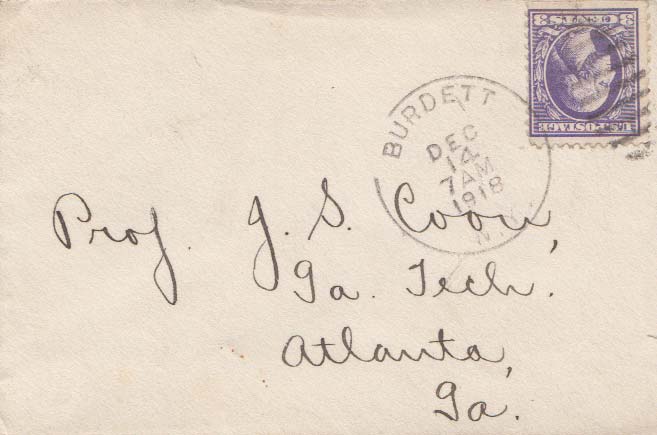 3 CENTS 3
U.S. POSTAGE
BURDETT
DEC
14
7 AM
1918
N.Y.
Prof. J. S. Coon,
Ga. Tech.
Atlanta,
Ga.